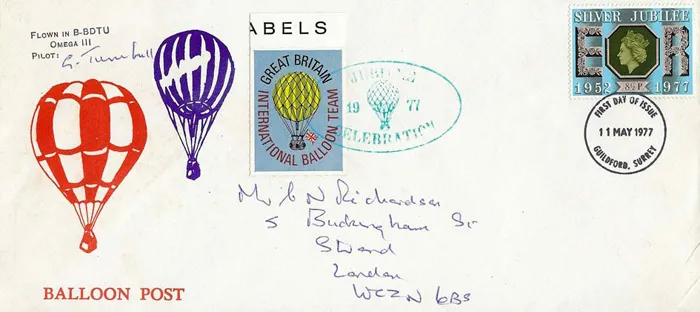 FLOWN IN B-BDTU
OMEGA III
PILOT: G. Turnbull
ABELS
GREAT BRITAIN
INTERNATIONAL BALLOON TEAM
JUBILEE
19 77
CELEBRATION
SILVER JUBILEE
E R
8½P
1952 1977
FIRST DAY OF ISSUE
11 MAY 1977
GUILDFORD, SURREY
Mr G N Richardson
5 Buckingham St
Strand
London
WC2N 6BS
BALLOON POST